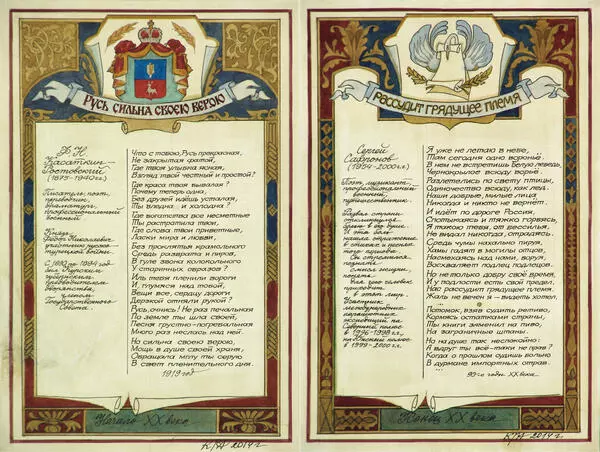 Русь сильна своею верою
Ф. Н.
Касаткин-
Ростовский
(1875-1940гг.)
Писатель, поэт,
драматург,
профессиональный
военный.
Князь
Фёдор Николаевич
участник русско-
турецкой войны.
губернским
предводителем
дворянства,
членом
Государственного
Совета.
Что с тобою, Русь прекрасная,
Не закрытая фатой,
Где твоя улыбка ясная,
Взгляд твой честный и простой?
Где краса твоя бывалая?
Почему теперь одна,
Без друзей идёшь усталая,
Ты бледна и холодна?
Где богатства все несметные
Ты растратила твои,
Где слова твои приветные,
Ласки мира и любви,
Без проклятия кромольного
Средь разврата и пиров,
В гуле звона колокольного
У старинных образов?
Иль тебя пленили вороги
И, глумясь над тобой,
Вещи все, сердцу дороги
Дерзкой отняли рукой?
Русь, очнись! Не раз печальная
По земле ты шла своей,
Песня грустно-погребальная
Много раз неслась над ней.
Но сильна своею верою,
Мощь в душе своей храня,
Обращала мглу ты серую
В свет пленительного дня.
1919 год
Начало XX века
КЯА 2014 г.
Рассудит грядущее племя
Сергей
Сафронов
(1954-2000гг.)
Поэт, музыкант,
профессиональный
военный,
путешественник.
Развал страны
откликнулся
болью в его душе.
И эта боль
нашла отражение
в стихах и песнях
Он стремился
познать
смысл жизни,
понять
в этот мир.
Участник
международных
экспедиций на
Северный полюс
в 1996-1998гг.,
на Южный полюс
в 1999-2000гг.
Я уже не летаю в небе,
Там сегодня одно вороньё.
В нём не встретишь белую лебедь,
Чернокрылое всюду ворьё.
Разлетелись по свету птицы,
Одиночество всюду, как лёд.
Наши добрые, милые лица
Никогда и никто не вернёт.
И идёт по дороге Россия,
Спотыкаясь и тяжко горбясь,
Я такою тебя, от бессилья,
Не видал никогда, отродясь.
Средь чумы нахально пируя,
Хамы гадят в могилы отцов,
Насмехаясь над нами, воруя,
Восхваляет подлец подлецов.
Но не только добру своё время,
И у подлости есть свой предел.
Нас рассудит грядущее племя.
Жаль не вечен я – видеть хотел.
...
Потомок, взяв судить ретиво,
Кормясь остатками страны,
Ты книги заменил на пиво,
На заграничные штаны.
Но на душе так неспокойно:
И вдруг ты всё-таки не прав?
Когда о прошлом судишь вольно
В дурмане импортных отрав.
...
90-е годы XX века.
Конец XX века
КЯА 2014 г.